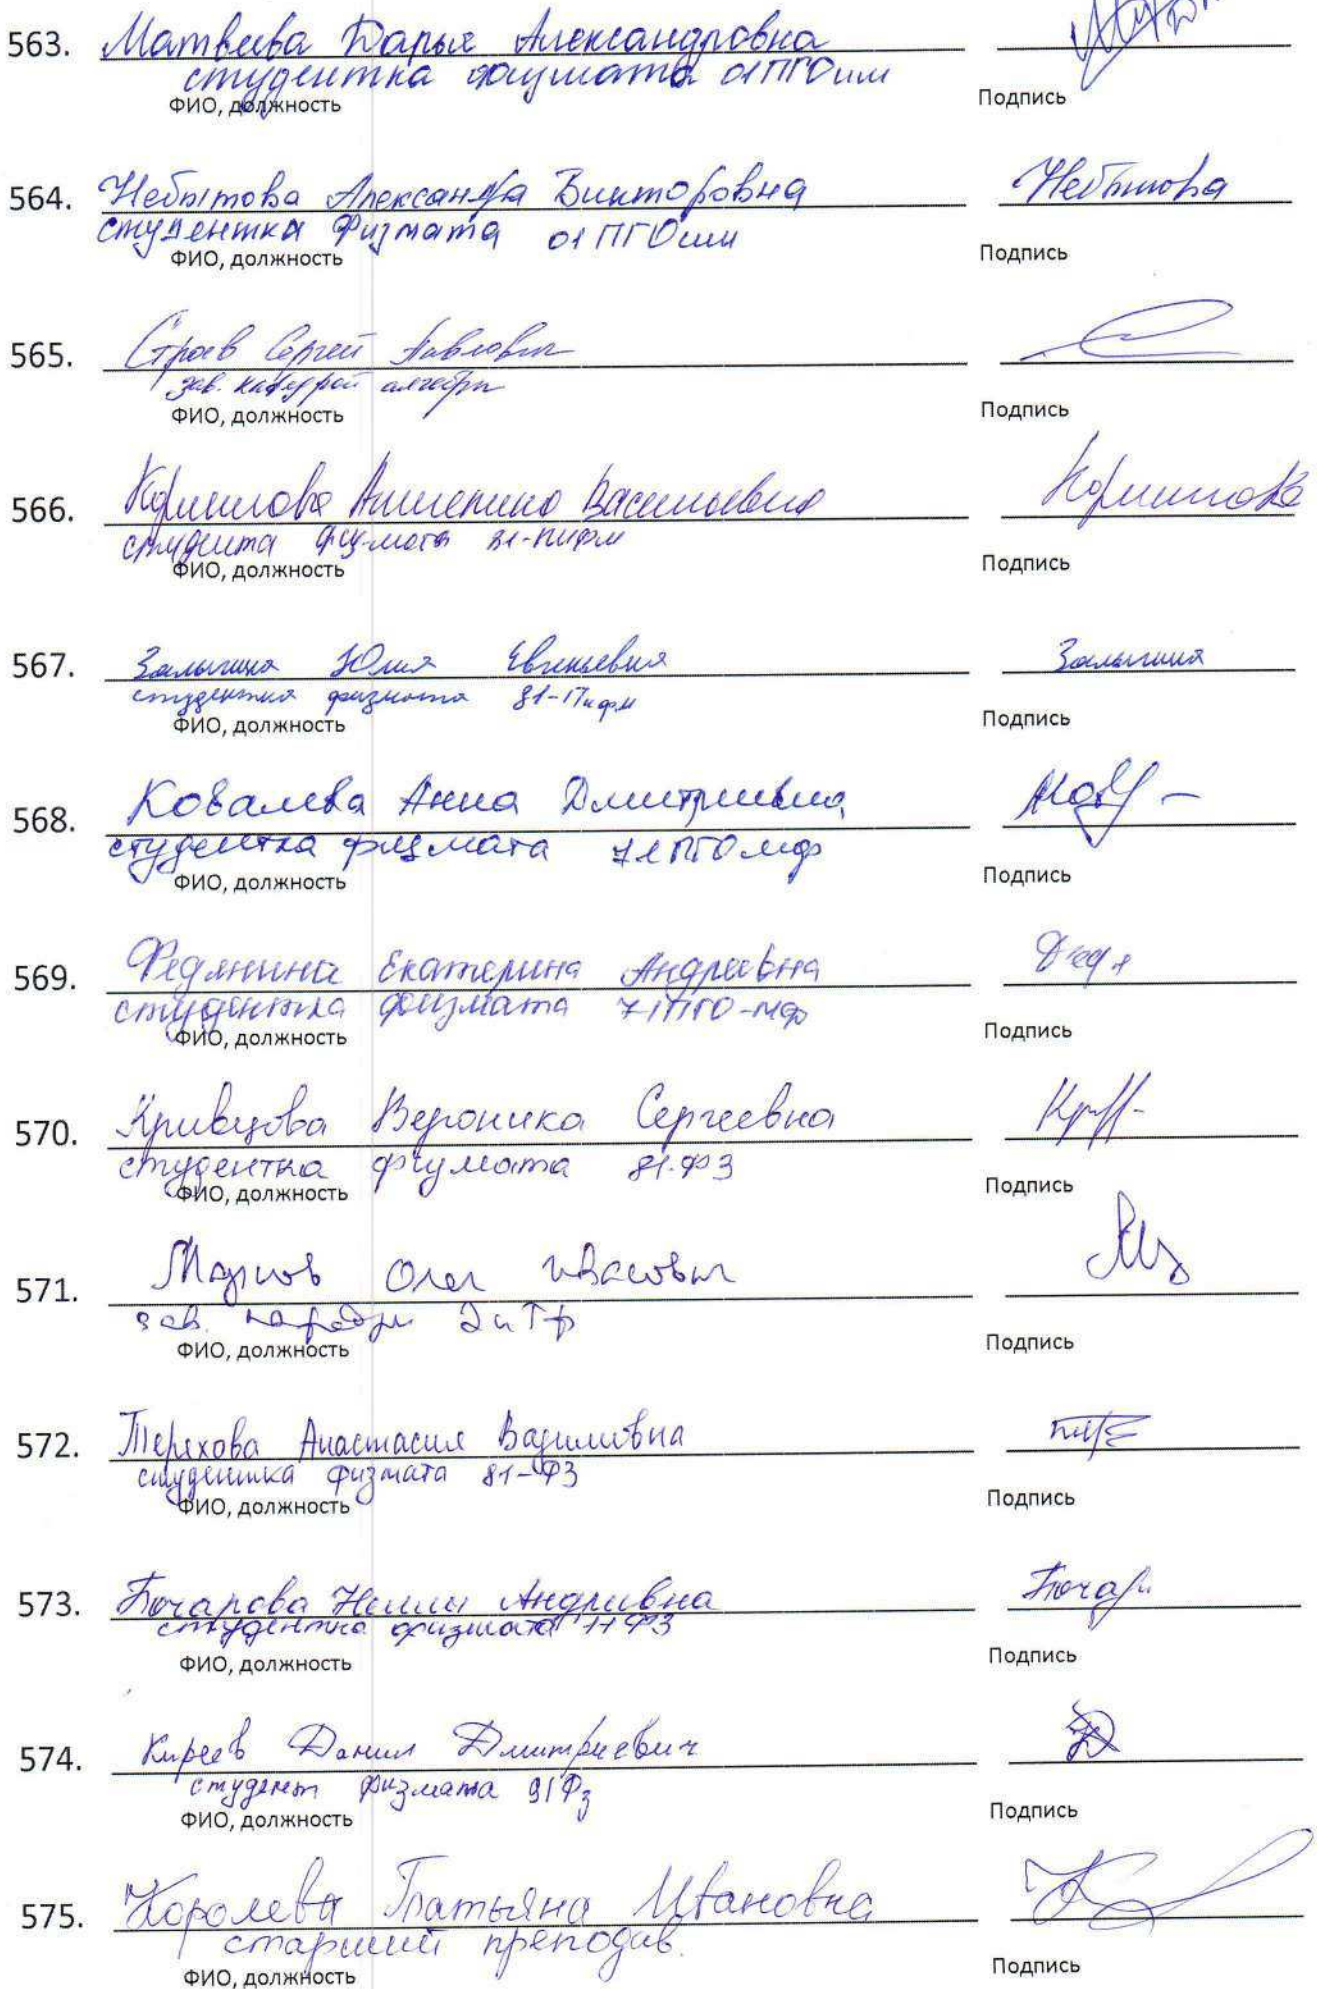 563. Матвеева Дарья Александровна
студентка физмата 01ПГОим
ФИО, должность Подпись
564. Небытова Александра Викторовна Небытова
студентка Физмата 01 ПГОим
ФИО, должность Подпись
565. Строев Сергей Павлович
зав. кафедрой алгебры
ФИО, должность Подпись
566. Корнилова Ангелина Васильевна Корнилова
студентка физ-мата
ФИО, должность Подпись
567. Залыгина Юлия Евгеньевна Залыгина
студентка физмата 81-Пифм
ФИО, должность Подпись
568. Ковалева Анна Дмитриевна
студентка физмата 71ПГОмф
ФИО, должность Подпись
569. Федянина Екатерина Андреевна
студентка физмата 71ПГО-мф
ФИО, должность Подпись
570. Кривцова Вероника Сергеевна
студентка физмата 81-ФЗ
ФИО, должность Подпись
571. Марков Олег
зав. кафедры
ФИО, должность Подпись
572. Терехова Анастасия Вадимовна
студентка физмата 81-ФЗ
ФИО, должность Подпись
573. Бочарова Нелли Андреевна
студентка физмата 11ФЗ
ФИО, должность Подпись
574. Киреев Данил Дмитриевич
студент физмата 91Фз
ФИО, должность Подпись
575. Королева Татьяна Ивановна
старший преподав.
ФИО, должность Подпись